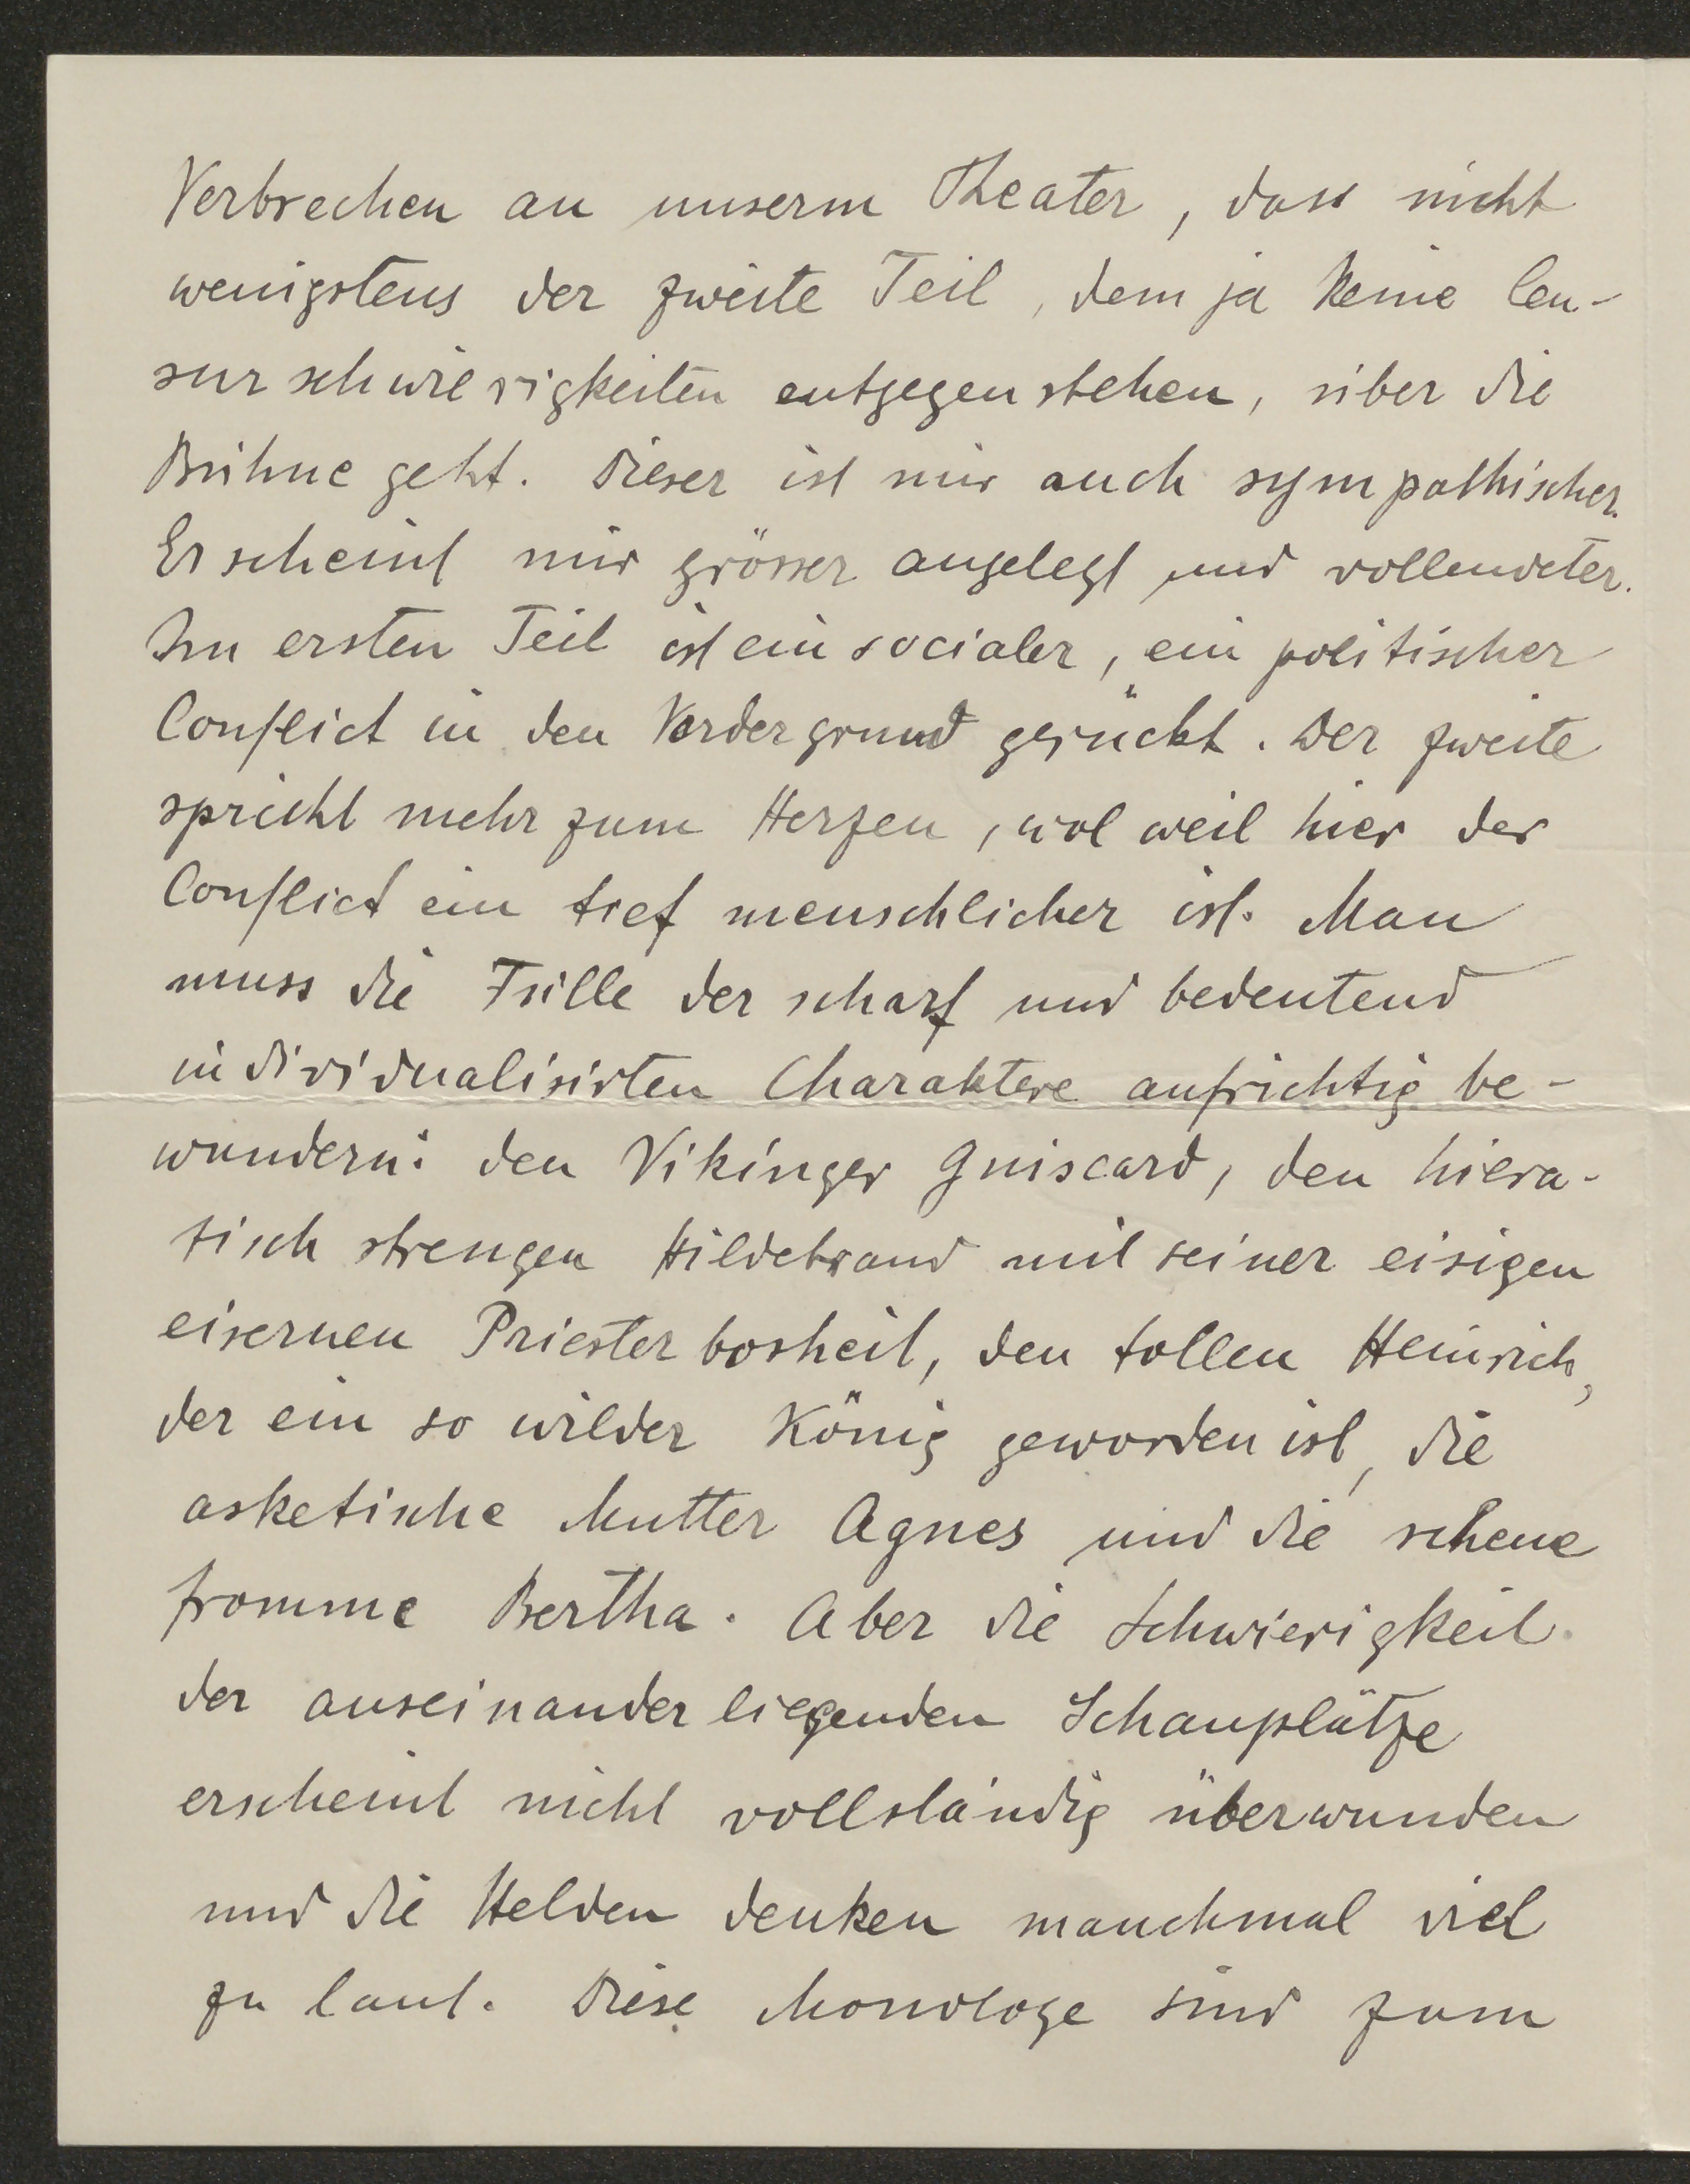 Verbrechen an unserm Theater, dass nicht
wenigstens der zweite Teil, dem ja keine Cen-
surschwierigkeiten entgegenstehen, über die
Bühne geht. Dieser ist mir auch sympathischer.
Er scheint mir grösser angelegt und vollendeter.
Im ersten Teil ist ein socialer, ein politischer
Conflict in den Vordergrund gerückt. Der zweite
spricht mehr zum Herzen, wol weil hier der
Conflict ein tief menschlicher ist. Man
muss die Fülle der scharf und bedeutend
individualisirten Charaktere aufrichtig be-
wundern: den Vikinger Guiscard, den hiera-
tisch strengen Hildebrand mit seiner eisigen
eisernen Priesterbosheit, den tollen Heinrich,
der ein so wilder König geworden ist, die
asketische Mutter Agnes und die scheue
fromme Bertha. Aber die Schwierigkeit
der auseinanderliegenden Schauplätze
erscheint nicht vollständig überwunden
und die Helden denken manchmal viel
zu laut. Diese Monologe sind zum